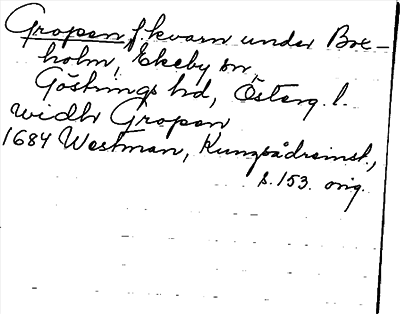 Gropen, f. kvarn under Box-
holm, Ekeby sn,
Göstrings hd, Österg. l.
widh Gropen
1684 Westman, Kungsådreinst.,
s. 153. orig.